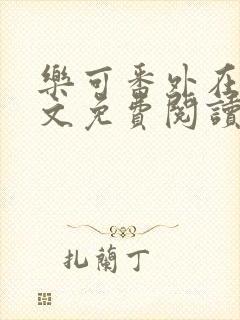 樂可番外在
文免費閱讀
扎蘭丁